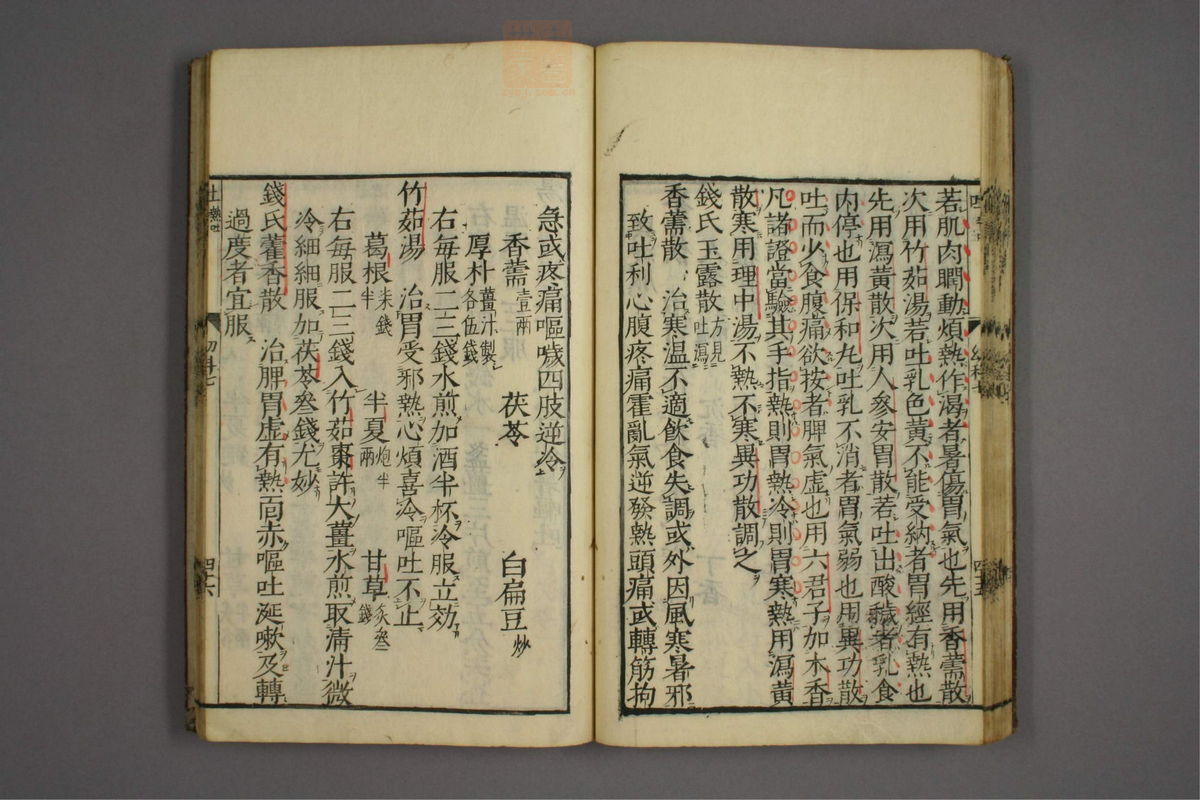 若肌肉瞤動煩熱作渴者暑傷胃氣也先用香薷散
次用竹茹湯若吐乳色黃不能受納者胃經有熱也
先用瀉黃散次用人參安胃散若吐出酸穢者乳食
內停也用保和丸吐乳不消者胃氣弱也用異功散
吐而少食腹痛欲按者脾氣虛也用六君子加木香
凡諸證當驗其手指熱則胃熱冷則胃寒熱用瀉黃
散寒用理中湯不熱不寒異功散調之
錢氏玉露散方見吐瀉
香薷散 治寒溫不適飲食失調或外因風寒暑邪
致吐利心腹疼痛霍亂氣逆發熱頭痛或轉筋拘
急或疼痛嘔噦四肢逆冷
香薷壹兩 茯苓 白扁豆炒
厚朴薑汁製各伍錢
右每服二三錢水煎加酒半杯冷服立効
竹茹湯 治胃受邪熱心煩喜冷嘔吐不止
葛根柒錢半 半夏炮半兩 甘草炙叄錢
右每服二三錢入竹茹棗許大薑水煎取清汁微
冷細細服加茯苓叄錢尤妙
錢氏藿香散 治脾胃虛有熱面赤嘔吐涎嗽及轉
過度者宜服
四十六